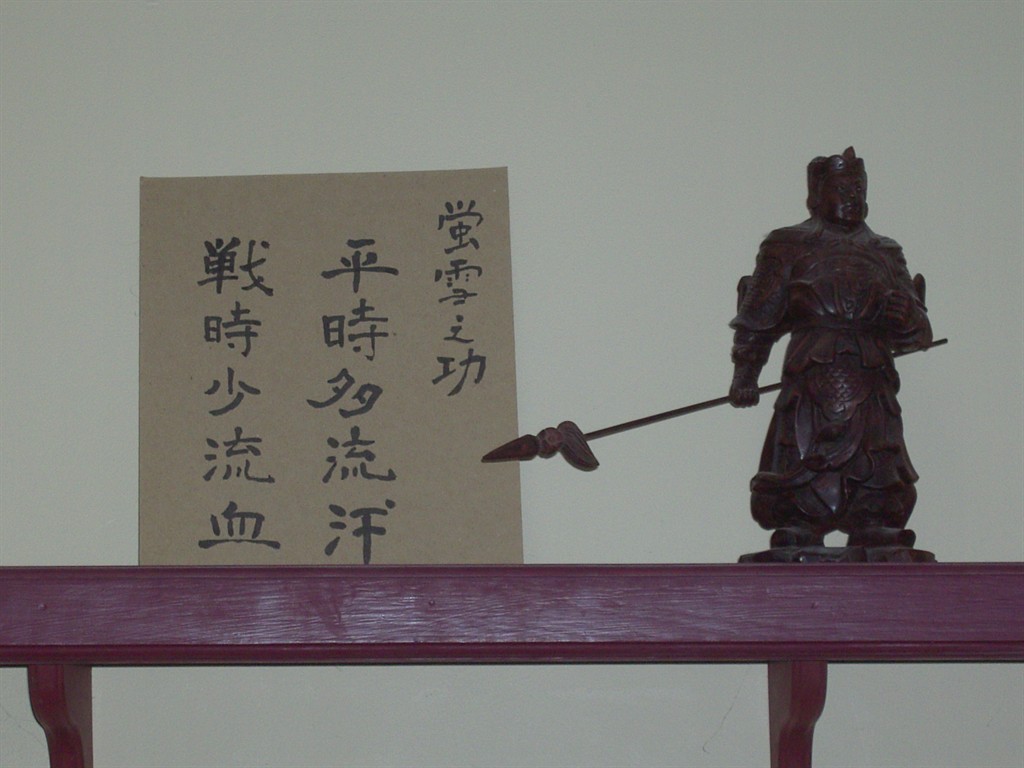 蛍雪之功
平時多流汗
戦時少流血